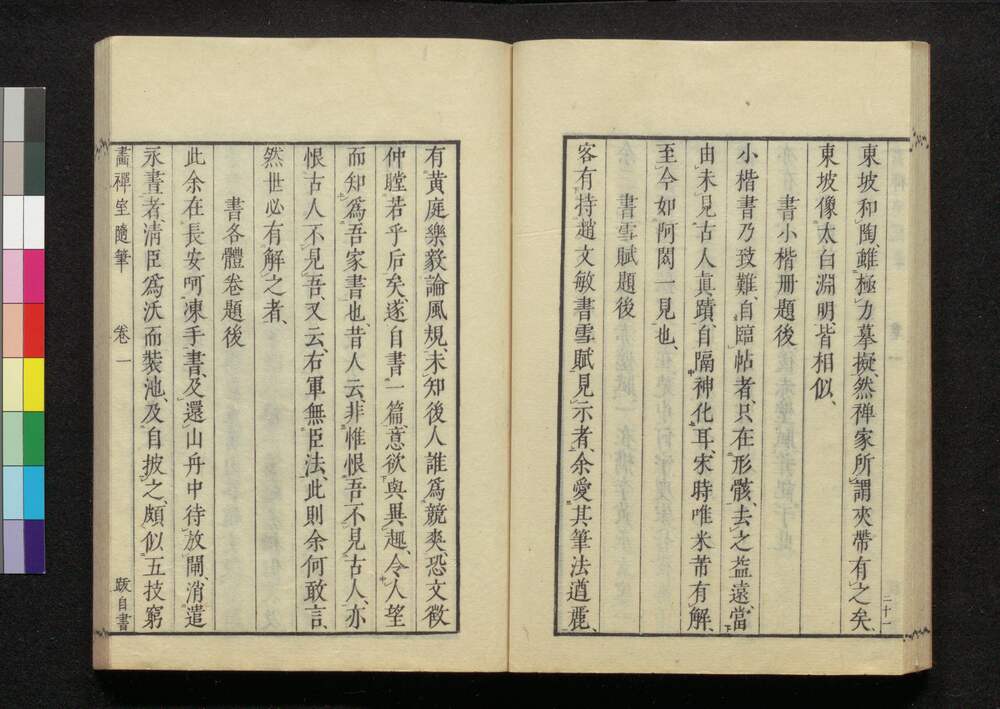 東坡和陶、雖極力摹擬、然禪家所謂夾帶有之矣、
東坡像太白淵明皆相似、
書小楷册題後
小楷書乃致難、自臨帖者、只在形骸、去之益遠、當
由未見古人眞蹟、自隔神化耳、宋時唯米芾有解、
至今如阿閦一見也、
書雪賦題後
客有持趙文敏書雪賦見示者、余愛其筆法遒麗、
二十一
有黃庭樂毅論風規、未知後人誰爲競爽、恐文徵
仲瞠若乎后矣、遂自書一篇、意欲與異趣、令人望
而知爲吾家書也、昔人云、非惟恨吾不見古人、亦
恨古人不見吾、又云、右軍無臣法、此則余何敢言、
然世必有解之者、
書各體卷題後
此余在長安呵凍手書、及還山舟中待放閘、消遣
永晝者、淸臣爲沃而裝池、及自披之、頗似五技窮
畵禪室隨筆 卷一 跋自書